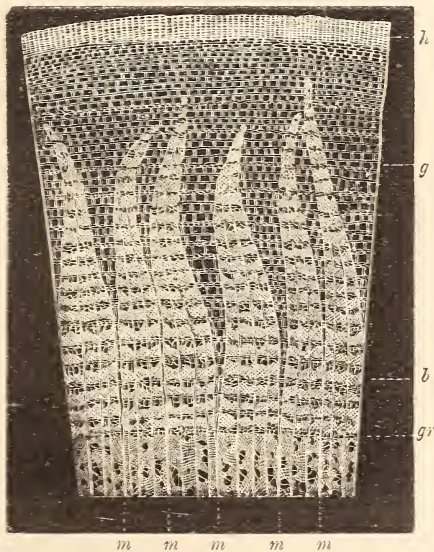 h
g
b
gr
m m m m m